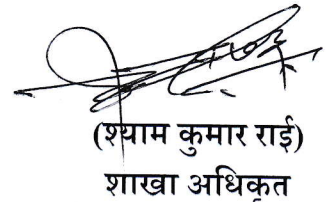 (श्याम कुमार राई)
शाखा अधिकृत